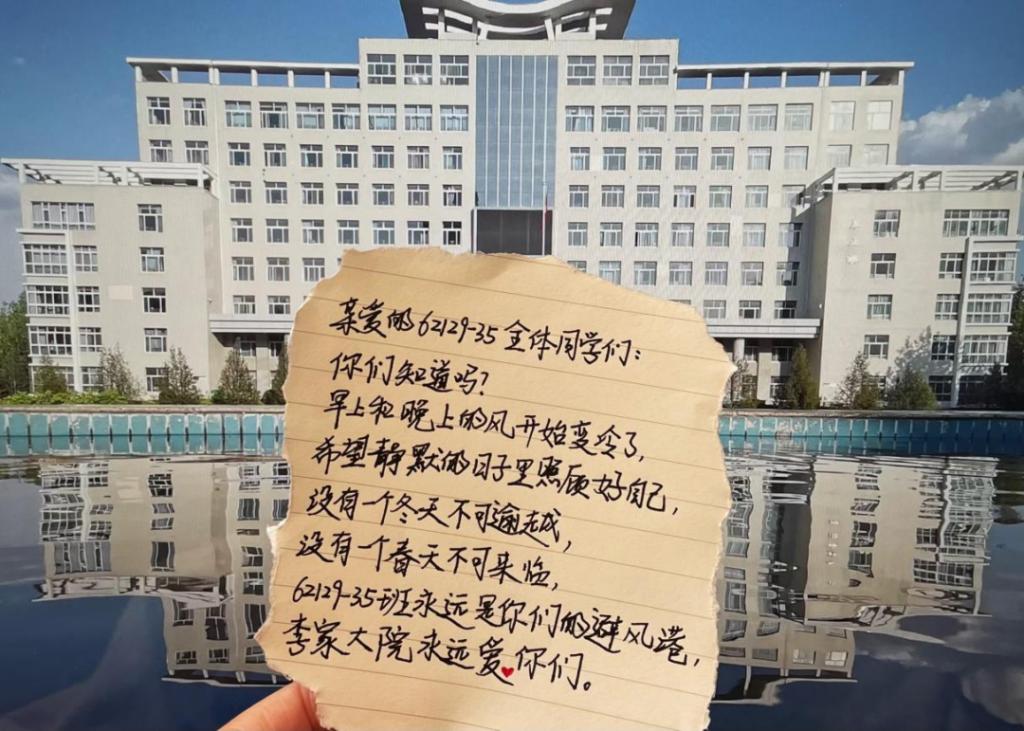 亲爱的62129-35全体同学们：
你们知道吗？
早上和晚上的风开始变冷了，
希望静默的日子里照顾好自己，
没有一个冬天不可逾越，
没有一个春天不可来临，
62129-35班永远是你们的避风港，
李家大院永远爱你们。